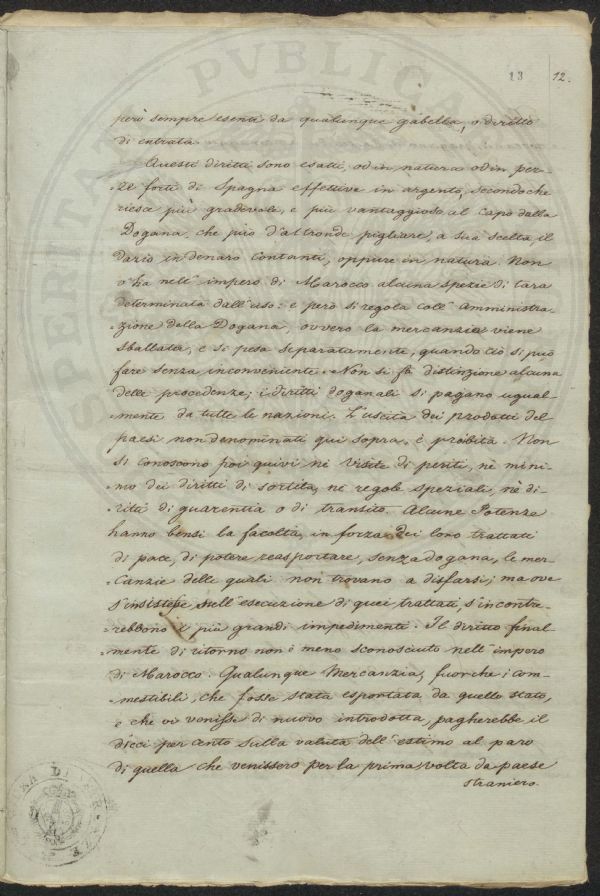 13 12.
però sempre esenti da qualunque gabella, o diritto
di entrata.
Questi diritti sono esatti, od in natura od in pez-
-ze forti di Spagna effettive in argento, secondochè
riesce più gradevole, e più vantaggioso al capo della
Dogana, che può d'altronde pigliare, a sua scelta il
Dazio in denaro contanti, oppure in natura. Non
v'ha nell'impero di Marocco alcuna spezie di tara
determinata dall'uso: e però si regola coll'Amministra-
-zione della Dogana, ovvero la mercanzia viene
sballata, e si pesa separatamente, quando ciò si può
fare senza inconveniente. Non si fà distinzione alcuna
delle procedenze; i diritti doganali si pagano ugual-
-mente da tutte le nazioni. L'uscita dei prodotti del
paesi non denominati qui sopra, è proibita. Non
si conoscono poi quivi nè visite di periti, nè mini-
-mo dei diritti di sortita, nè regole speziali, nè di-
-ritti di guarentia o di transito. Alcune Potenze
hanno bensì la facoltà, in forza dei loro trattati
di pace, di potere reasportare, senza dogana, le mer-
-canzie delle quali non trovano a disfarsi; ma ove
s'insistesse nell'esecuzione di quei trattati, s'incontre-
-rebbono i più grandi impedimenti. Il diritto final-
-mente di ritorno non è meno sconosciuto nell'impero
di Marocco. Qualunque Mercanzia, fuorchè i com-
-mestibili, che fosse stata esportata da quello stato,
e che vi venisse di nuovo introdotta, pagherebbe il
dieci per cento sulla valuta dell'estimo al paro
di quella che venissero per la prima volta da paese
straniero.